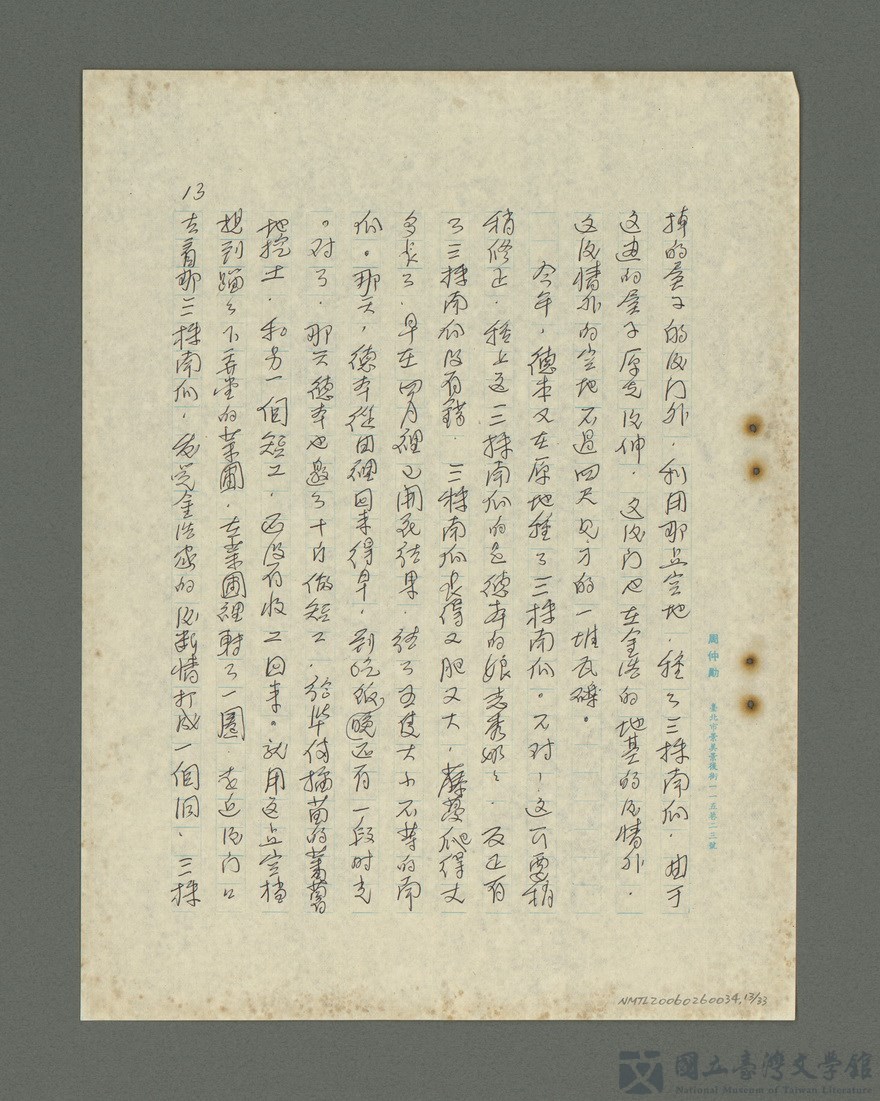 掉的屋子的後门外，利用那丘空地，種了三株南瓜。由于
这边的屋子原先没伸，这後门也在金浩的地基的後墙外，
这後墙外的空地不過四尺見方的一堆瓦礫。
今年，德本又在原地種了三株南瓜。不对！这可要稍
稍修正，種上这三株南瓜的是德本的娘志秀奶々，反正有
了三株南瓜没有錯。三株南瓜長得又肥又大，藤蔓爬得丈
多長了，早在四月裡已開花結果，結了五隻大小不等的南
瓜。那天，德本從田裡回来得早，到吃晚飯还有一段时光
。对了，那天德本也邀了十內做短工，給準備插苗的蕃薯
地挖土，和另一個短工，还没有收工回来。就用这丘空檔
想到蹓々下弄堂的菜圃，在菜圃裡轉了一圈，走近後门口
去看那三株南瓜，发觉金浩家的後断墙打成一個洞，三株
13
周仲勋
臺北市景美景後街一一五巷二三號
NMTL20060260034,13/33
國立臺灣文學館
National Museum of Taiwan Literature